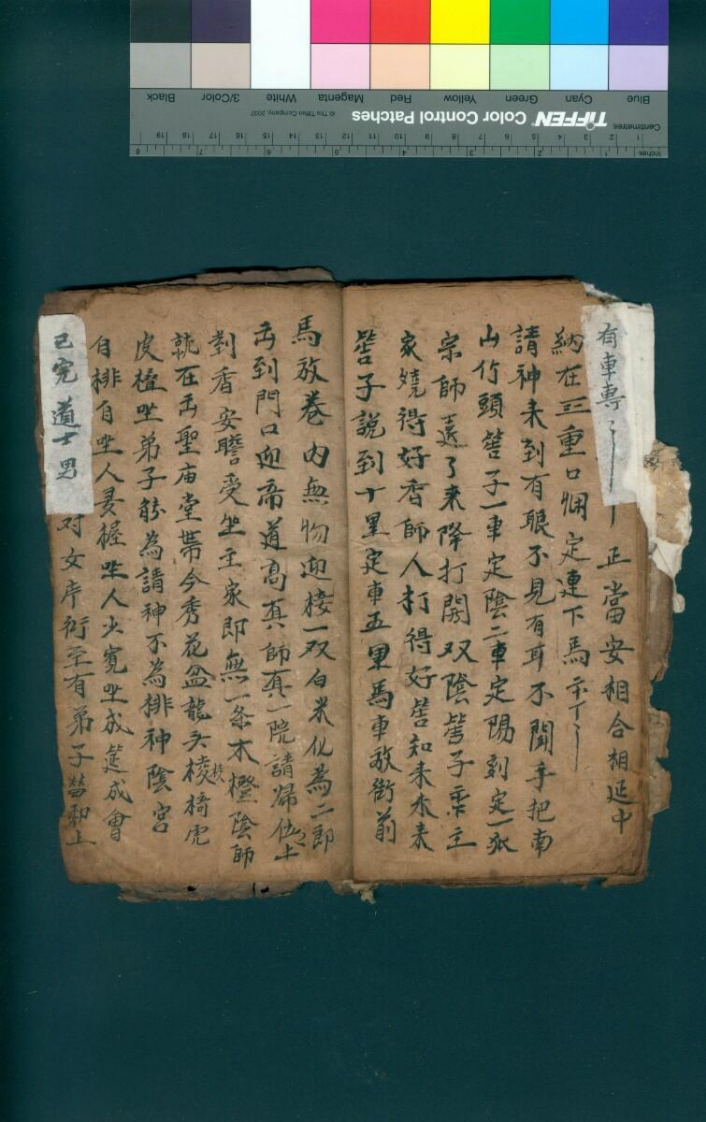 有車專
正當安相合相延中
納在三重口 定連下馬
請神未到有眼不見有耳不聞手把南
山竹頭筶子一車定陰二車定陽到定一
宗師 了來降打開双陰筶子 主
家燒得好香師人打得好筶知來木來
筶子說到十里定車五里馬車放街前
馬放巷內無物迎接一双白米化為二郎
到門口迎 道高真師真一院請歸位上
對香安 受坐主家即無一条木橙陰師
就在 聖庙堂 今秀花盆龍头 椅虎
皮 坐弟子 為請神不為排神陰宮
自排自坐人 坐人少寬坐成筵成會
已完道士男
对女 術至有弟子 上
TIFFEN Color Control Patches
© The Tiffen Company, 2007
Blue Cyan Green Yellow Red Magenta White 3/Color Black
Centimetres 1 2 3 4 5 6 7 8 9 10 11 12 13 14 15 16 17 18 19
Inches 1 2 3 4 5 6 7 8